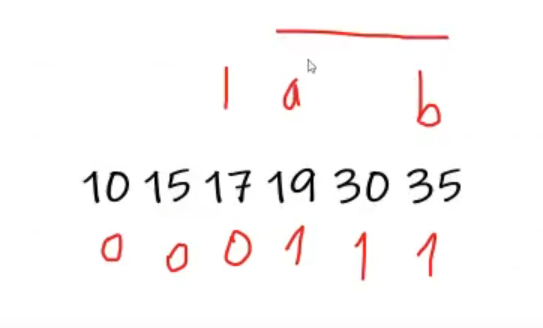 l a b
10 15 17 19 30 35
0 0 0 1 1 1